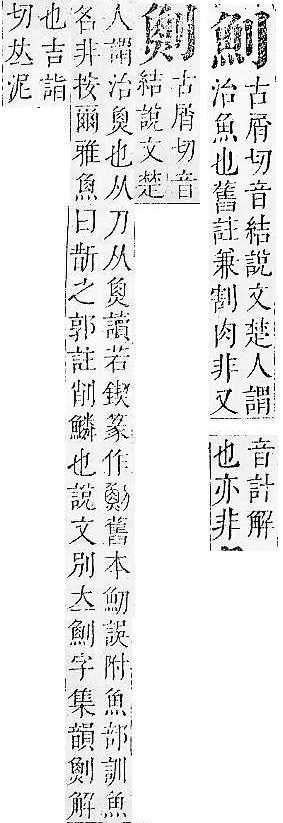 魝
古屑切音結說文楚人謂
治魚也舊註兼割肉非又
音計解
也亦非
古屑切音
結說文楚
人謂治𩵋也从刀从𩵋讀若鍥篆作舊本魛誤附魚部訓魚
名非按爾雅魚曰斮之郭註削鱗也說文別魝字集韻解
也吉詣
切𠀤泥